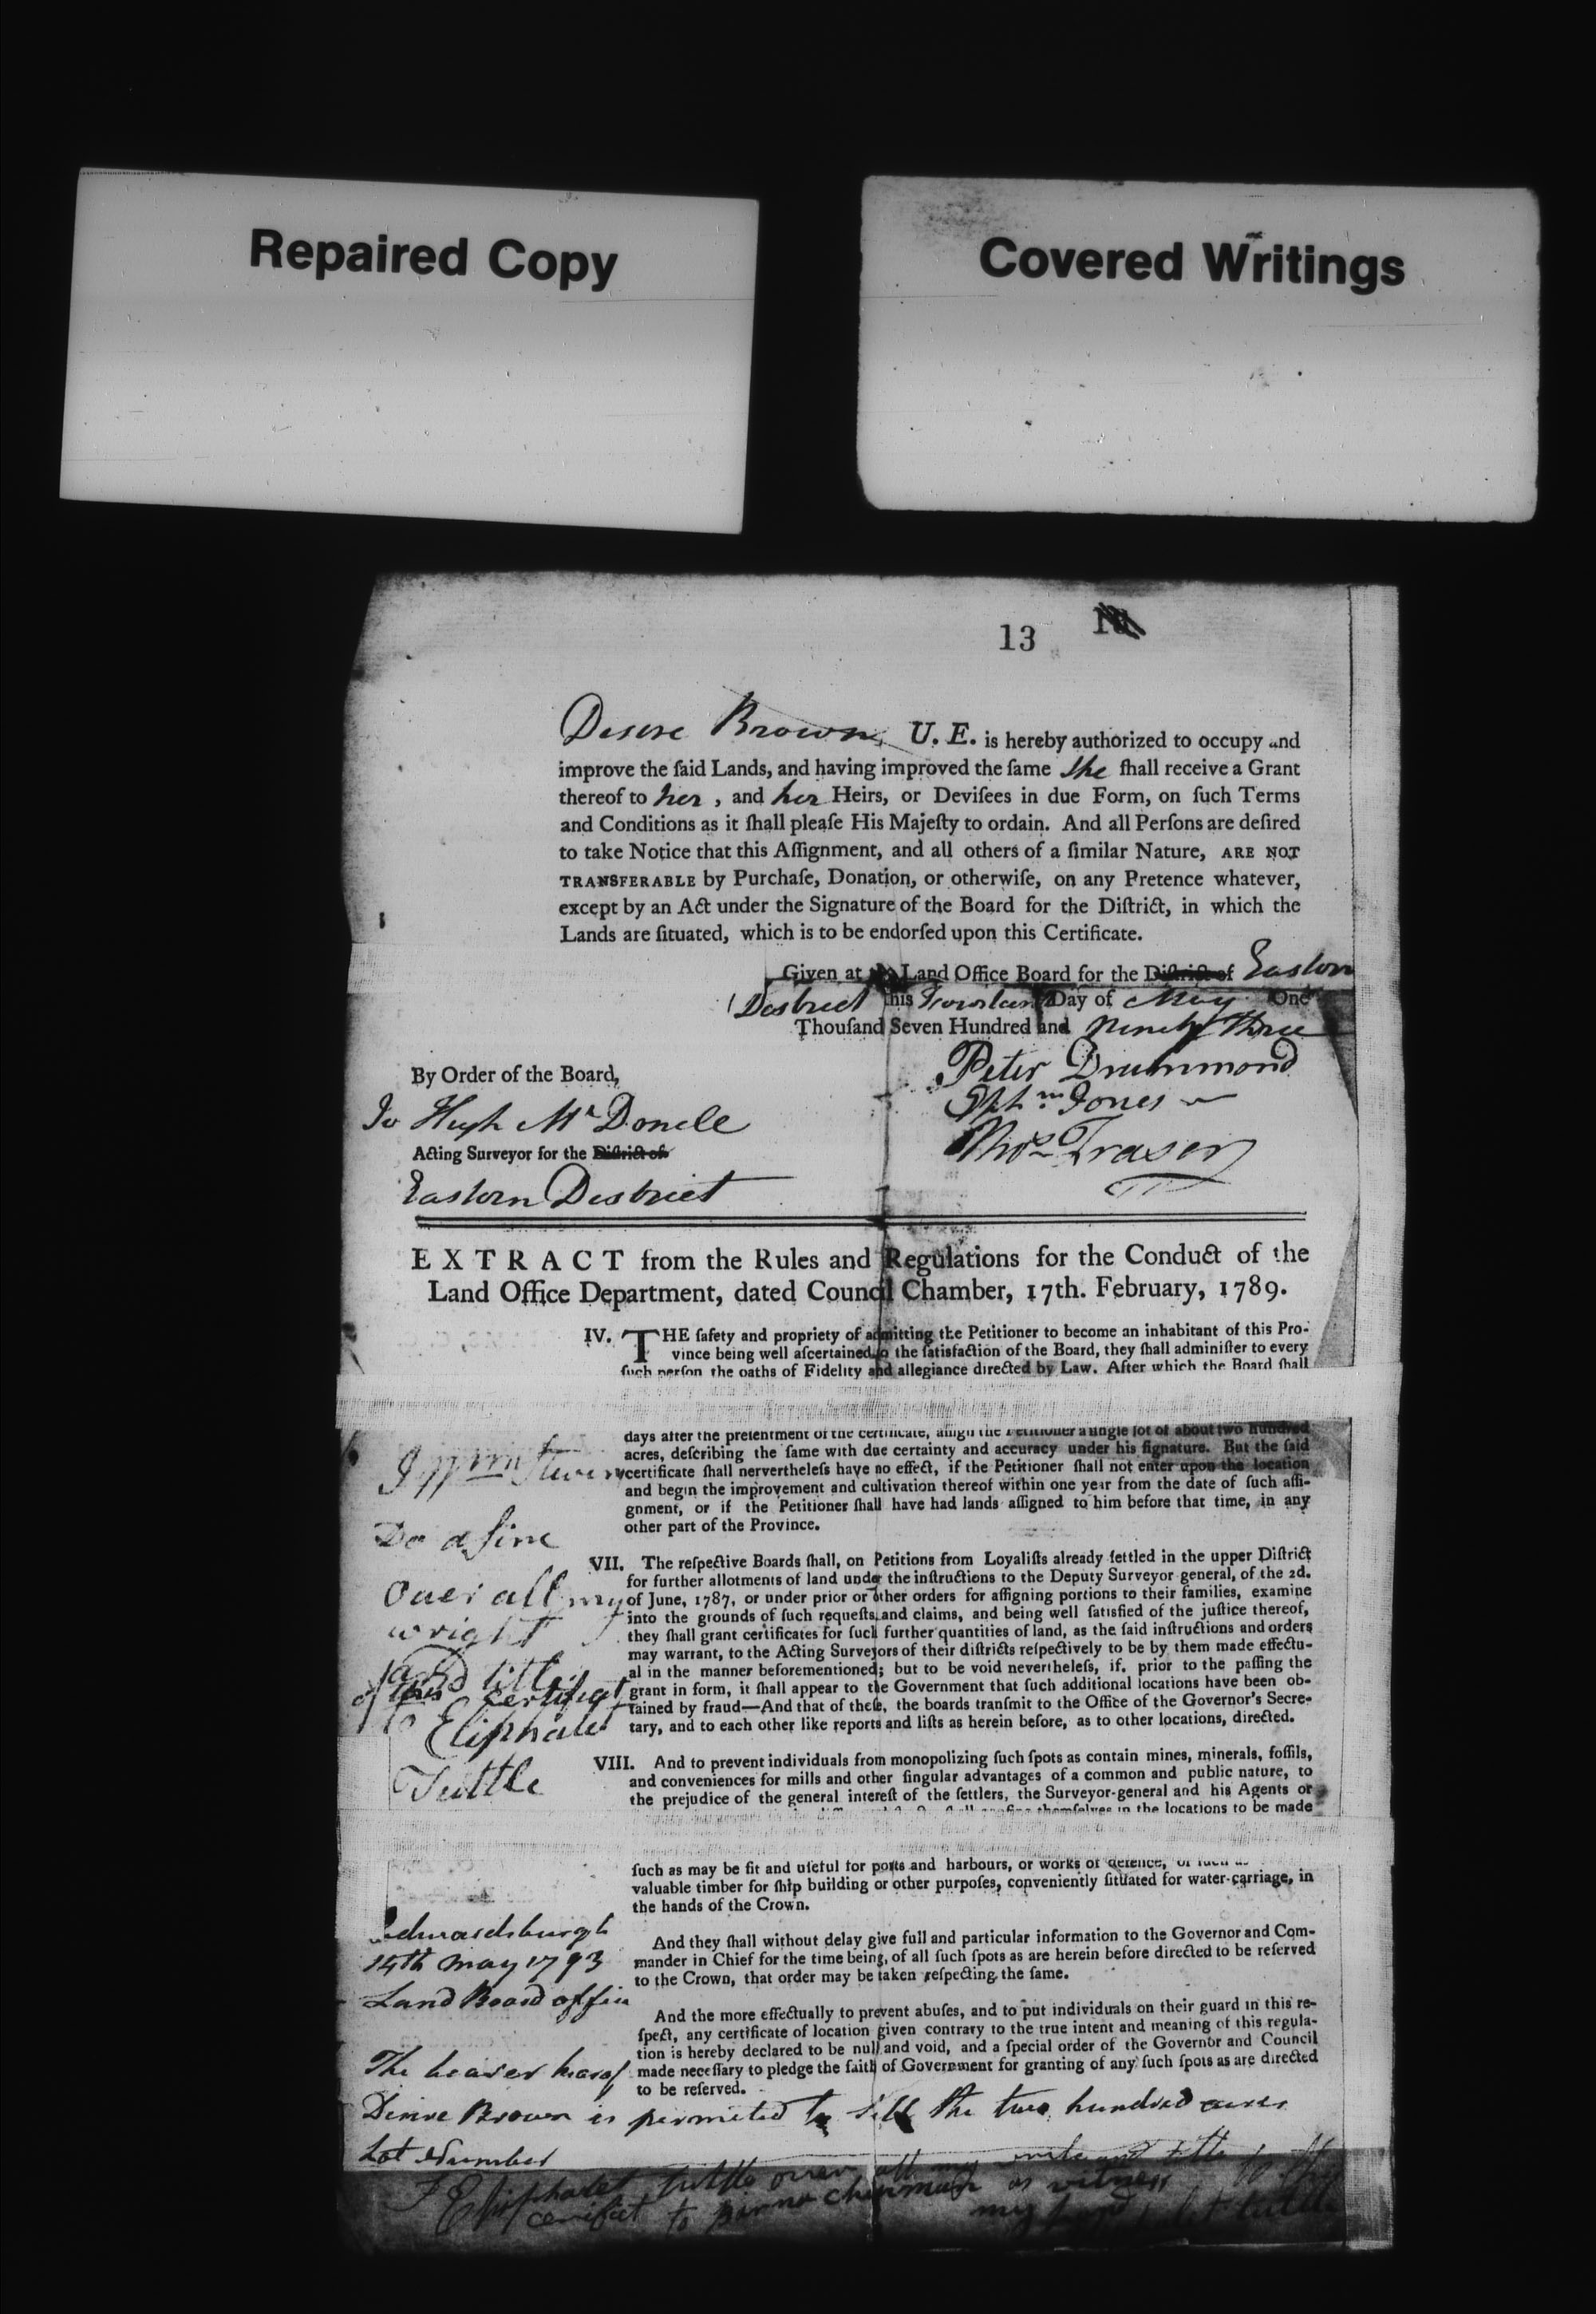 Repaired Copy
Covered Writings
13
Desire Brown, U. E. is hereby authorized to occupy and
improve the ſaid Lands, and having improved the ſame she ſhall receive a Grant
thereof to her , and her Heirs, or Deviſees in due Form, on ſuch Terms
and Conditions as it ſhall pleaſe His Majeſty to ordain. And all Perſons are deſired
to take Notice that this Aſſignment, and all others of a ſimilar Nature, ARE NOT
TRANSFERABLE by Purchaſe, Donation, or otherwiſe, on any Pretence whatever,
except by an Act under the Signature of the Board for the Diſtrict, in which the
Lands are ſituated, which is to be endorſed upon this Certificate.
Given at the Land Office Board for the Diſtrict of Eastern
District this Fourteenth Day of May One
Thouſand Seven Hundred and Ninety Three
Peter Drummond
By Order of the Board,
Ephm. Jones
To Hugh McDonell
Thos Fraser
Acting Surveyor for the Diſtrict of
Eastern District
EXTRACT from the Rules and Regulations for the Conduct of the
Land Office Department, dated Council Chamber, 17th. February, 1789.
IV. THE ſafety and propriety of admitting the Petitioner to become an inhabitant of this Pro-
vince being well aſcertained to the ſatisfaction of the Board, they ſhall adminiſter to every
ſuch perſon the oaths of Fidelity and allegiance directed by Law. After which the Board ſhall
days after the preſentment of the certificate, aſſign the Petitioner a ſingle lot of about two hundred
acres, deſcribing the ſame with due certainty and accuracy under his ſignature. But the ſaid
certificate ſhall nevertheleſs have no effect, if the Petitioner ſhall not enter upon the location
and begin the improvement and cultivation thereof within one year from the date of ſuch aſſi-
gnment, or if the Petitioner ſhall have had lands aſſigned to him before that time, in any
other part of the Province.
Do asine
over all my
wright
and title
of this certificat
Eliphalet
Tuttle
VII. The reſpective Boards ſhall, on Petitions from Loyaliſts already ſettled in the upper Diſtrict
for further allotments of land under the inſtructions to the Deputy Surveyor general, of the 2d.
of June, 1787, or under prior or other orders for aſſigning portions to their families, examine
into the grounds of ſuch requeſts and claims, and being well ſatisfied of the juſtice thereof,
they ſhall grant certificates for ſuch further quantities of land, as the ſaid inſtructions and orders
may warrant, to the Acting Surveyors of their diſtricts reſpectively to be by them made effectu-
al in the manner beforementioned; but to be void nevertheleſs, if, prior to the paſſing the
grant in form, it ſhall appear to the Government that ſuch additional locations have been ob-
tained by fraud—And that of theſe, the boards tranſmit to the Office of the Governor's Secre-
tary, and to each other like reports and liſts as herein before, as to other locations, directed.
VIII. And to prevent individuals from monopolizing ſuch ſpots as contain mines, minerals, foſſils,
and conveniences for mills and other ſingular advantages of a common and public nature, to
the prejudice of the general intereſt of the ſettlers, the Surveyor-general and his Agents or
themſelves in the locations to be made
ſuch as may be fit and uſeful for ports and harbours, or works of defence, or ſuch as
valuable timber for ſhip building or other purpoſes, conveniently ſituated for water-carriage, in
the hands of the Crown.
Edwardsburgh
14th May 1793
Land Board office
And they ſhall without delay give full and particular information to the Governor and Com-
mander in Chief for the time being, of all ſuch ſpots as are herein before directed to be reſerved
to the Crown, that order may be taken reſpecting the ſame.
And the more effectually to prevent abuſes, and to put individuals on their guard in this re-
ſpect, any certificate of location given contrary to the true intent and meaning of this regula-
tion is hereby declared to be null and void, and a ſpecial order of the Governor and Council
made neceſſary to pledge the faith of Government for granting of any ſuch ſpots as are directed
to be reſerved.
The bearer hearof
Desire Brown is permited to sell the two hundred acres
Lot Number
I Eliphalet tuttle over all my and title to
cerificat to chipman as witness
my hand tuttle